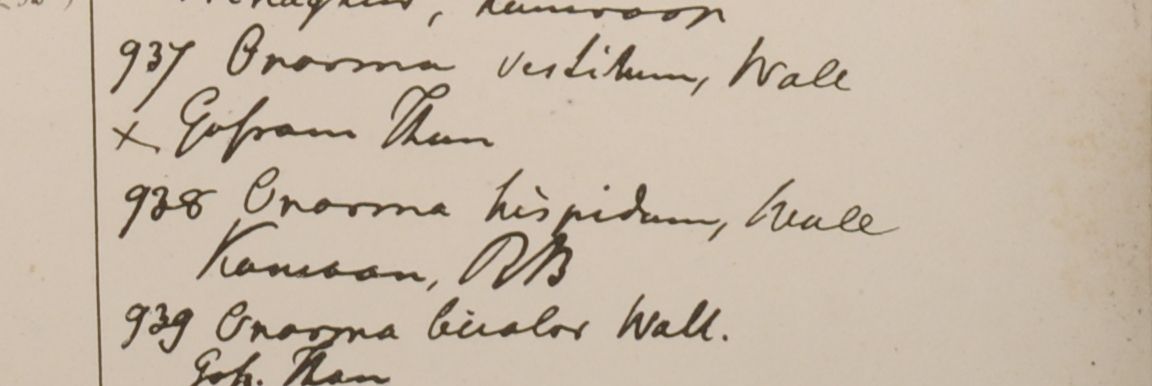 Kamaoon
937 Onosma vestitum, Wall
x Gossam Than
938 Onosma hispidum, Wall
Kamaoon, RB
939 Onosma bicolor Wall.
Goss. Than